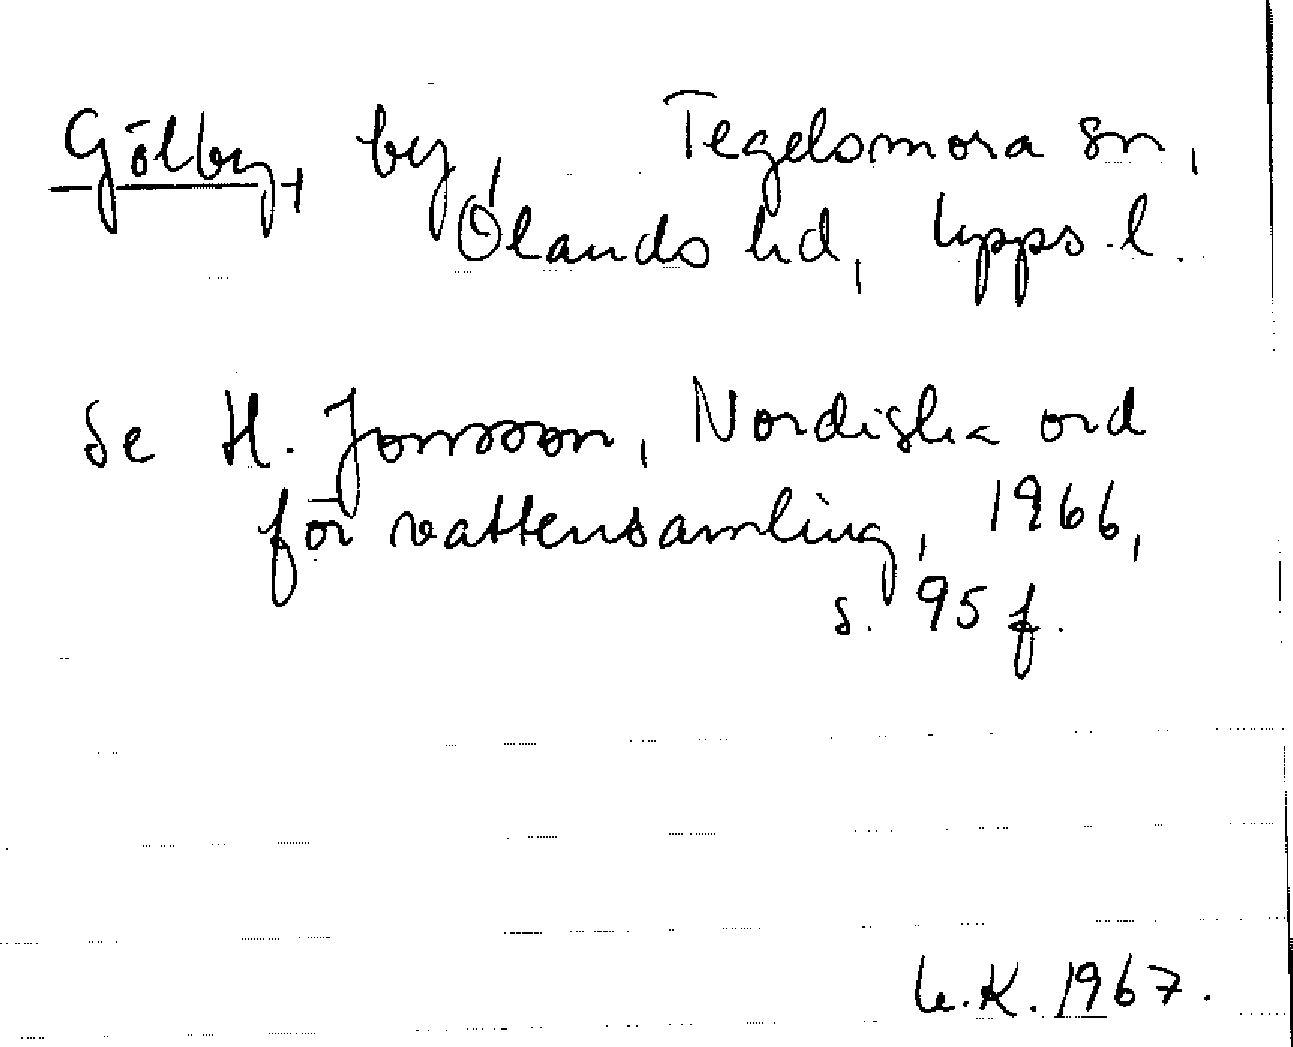 Gölby, by, Tegelsmora sn,
Ölands hd, Upps. l.
Se H. Jonsson, Nordiska ord
för vattensamling, 1966,
s. 95 f.
U.K. 1967.